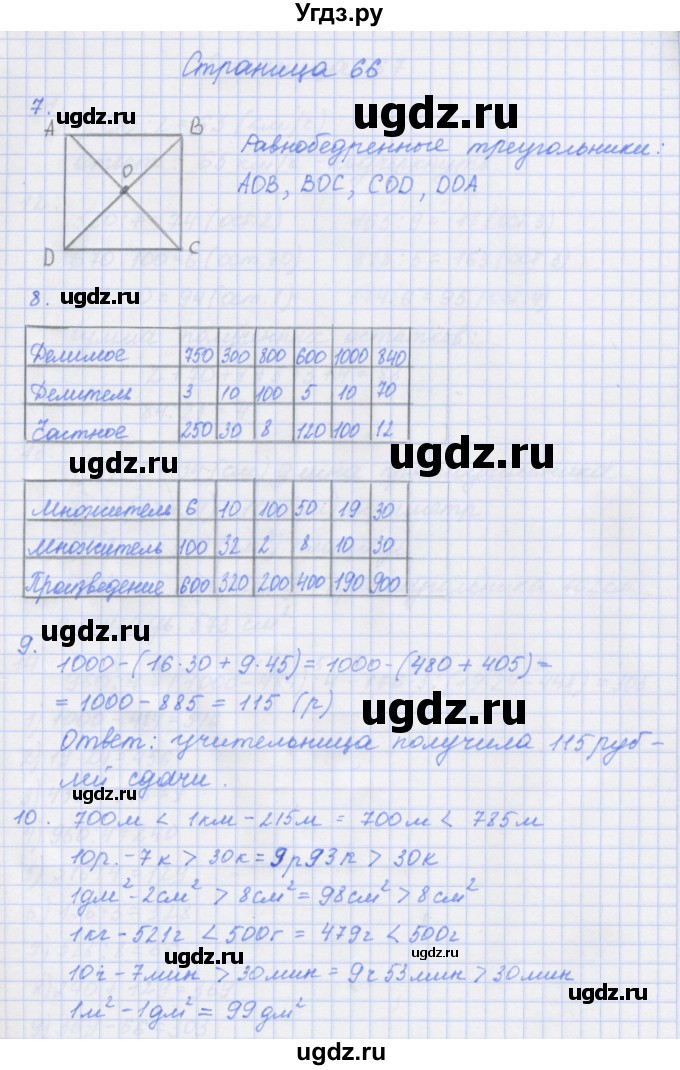 Угдз.ру
Страница 66
7. ugdz.ru ugdz.ru
A B
O
D C
Равнобедренные треугольники:
AOB, BOC, COD, DOA
ugdz.ru
8. ugdz.ru
Делимое 750 300 800 600 1000 840
Делитель 3 10 100 5 10 70
Частное 250 30 8 120 100 12
ugdz.ru ugdz.ru
Множитель 6 10 100 50 19 30
Множитель 100 32 2 8 10 30
Произведение 600 320 200 400 190 900
ugdz.ru
9.
1000-(16·30+9·45)=1000-(480+405)=
=1000-885=115 (р)
ugdz.ru
Ответ: учительница получила 115 руб-
лей сдачи.
ugdz.ru
10. 700м < 1км-215м = 700м < 785м
10р.-7к > 30к = 9р93к > 30к
1дм²-2см² > 8см² = 98см² > 8см²
1кг-521г < 500г = 479г < 500г
ugdz.ru
10ч-7мин > 30мин = 9ч53мин > 30мин
1м²-1дм² = 99дм²
ugdz.ru
ugdz.ru